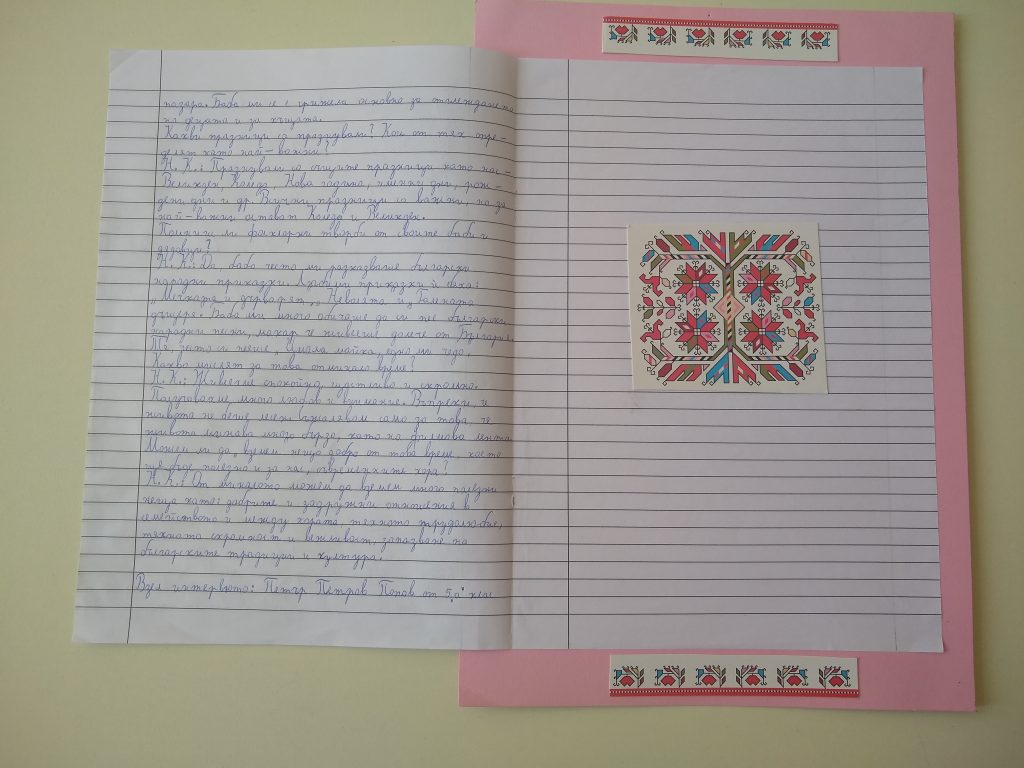 пазара. Баба ми се е грижела основно за отглеждането
на децата и за къщата.
Какви празници са празнували? Кои от тях опре-
делят като най-важни?
Н. К.: Празнували са същите празници като нас-
Великден, Коледа, Нова година, именни дни, рож-
дени дни и др. Всички празници са важни, но за
най-важни остават Коледа и Великден.
Помните ли фолклорни творби от своите баби и
дядовци?
Н. К.: Да, баба често ми разказваше български
народни приказки. Любими приказки ѝ бяха:
„Мечкаря и дърваря", „Неволята" и „Болната
дъщеря". Баба ми много обичаше да ми пее български
народни песни, макар че живееше далече от България.
Тя често ми пееше „Имала майка, едно ми чедо."
Какво мислят за това отминало време?
Н. К.: Живеели спокойно, щастливо и скромно.
Получаваше много любов и внимание. Въпреки, че
живота не беше лесен съжалявам само за това, че
живота минава много бързо, като на филмова лента.
Можем ли да вземем нещо добро от това време, което
ще бъде полезно и за нас, съвременните хора?
Н. К.: От миналото можем да вземем много полезни
неща като: добрите и задружни отношения в
семейството и между хората тяхното трудолюбие,
тяхната скромност и вежливост, запазване на
българските традиции и култура.
Взел интервюто: Петър Петров Попов от 5„а" клас